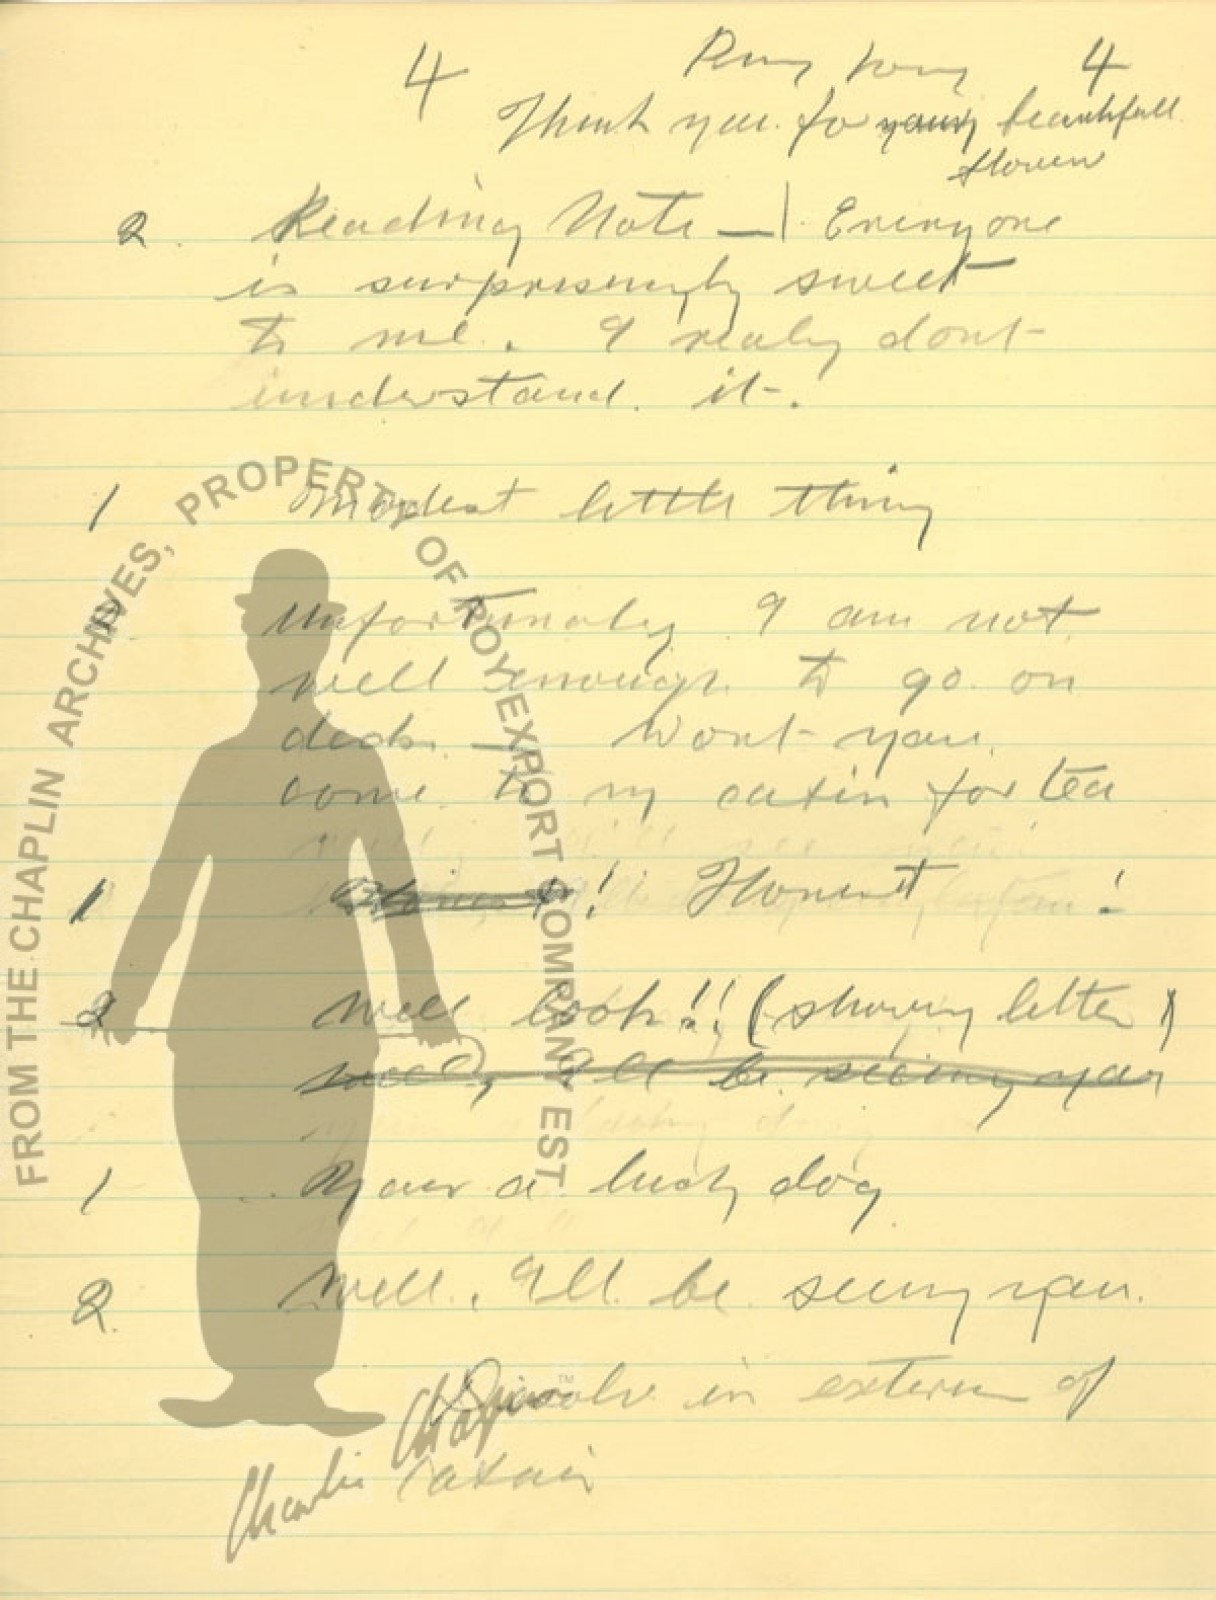 4 4
Thank you for your beautifull
flowers
2. Reading Note — | Everyone
is surprisingly sweet
to me. I realy dont
understand it.
1 Modest little thing
2. Unfortunaly I am not
well enough to go on
deck — Wont you
come to my cabin for tea
1 ! Honest !
2 Well look!! (showing letter)
well, I'll be seeing you
1 Your a lucky dog
2. Well. I'll be seeing you.
Disolve in exterior of
cabin
FROM THE CHAPLIN ARCHIVES, PROPERTY OF ROY EXPORT COMPANY EST
Charlie Chaplin
TM